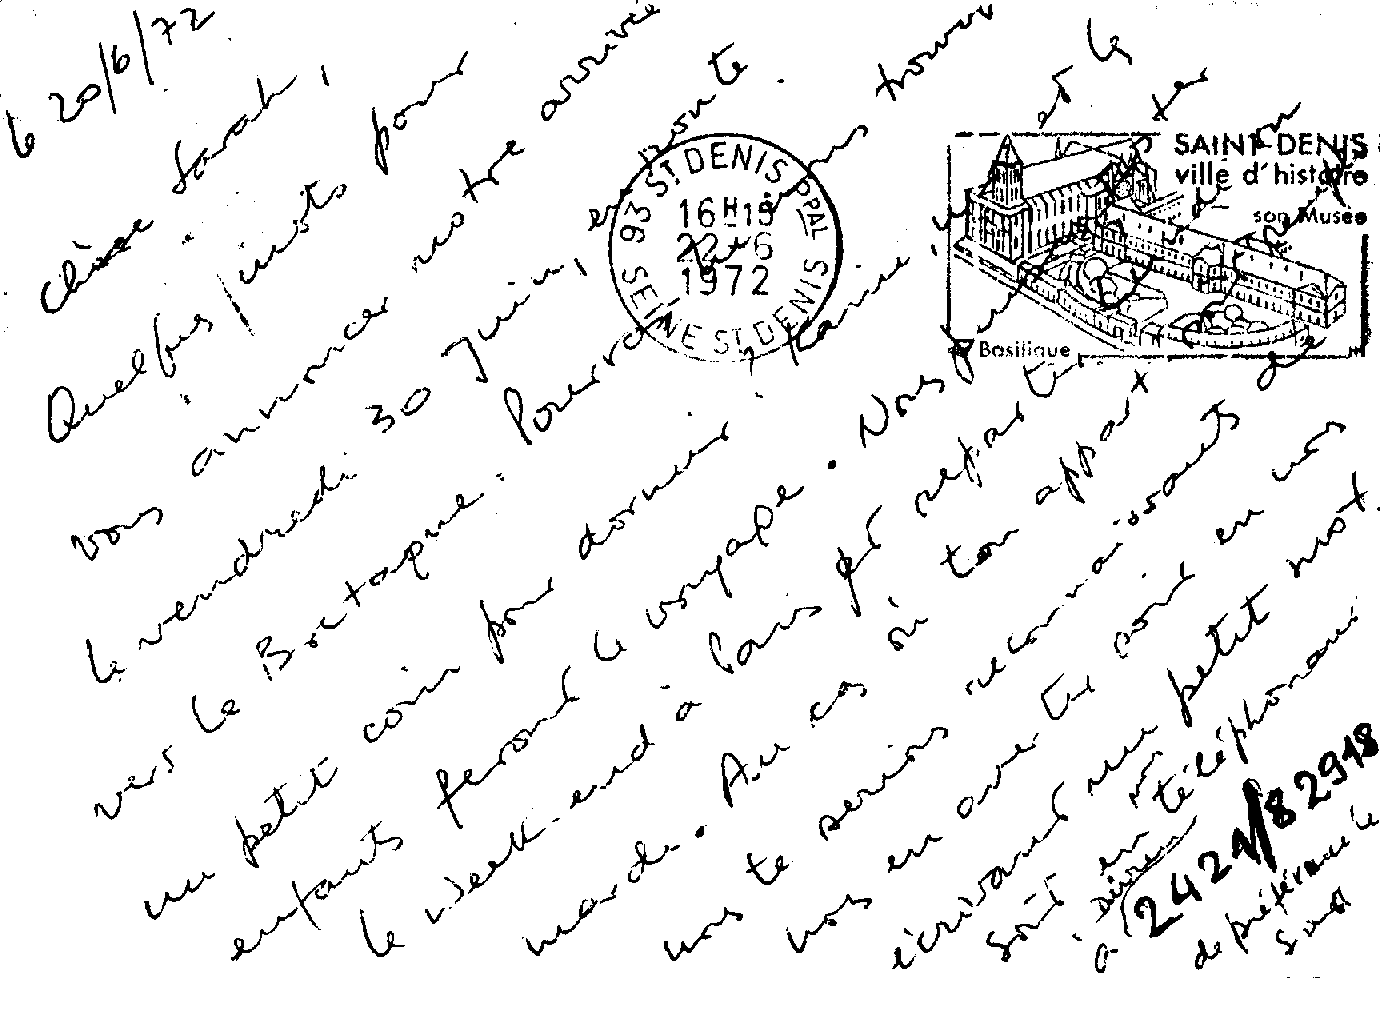 le 20/6/72
Chère Sarah,
Quelques mots pour
vous annoncer notre arrivée
le vendredi 30 Juin, en route
vers la Bretagne. Pourrais-tu nous trouver
un petit coin pour dormir ; Karine et les
enfants feront le voyage. Nous
le week-end à Paris pr repartir
mardi. Au cas où ton appart
nous te serions reconnaissants de
nous en avertir soit en nous
écrivant un petit mot.
soit en nous téléphonant
à 2421/82918
de préférence le
soir
93 ST DENIS PPAL
16H15
22-6
1972
SEINE ST DENIS
SAINT-DENIS
ville d'histoire
son Musée
Basilique